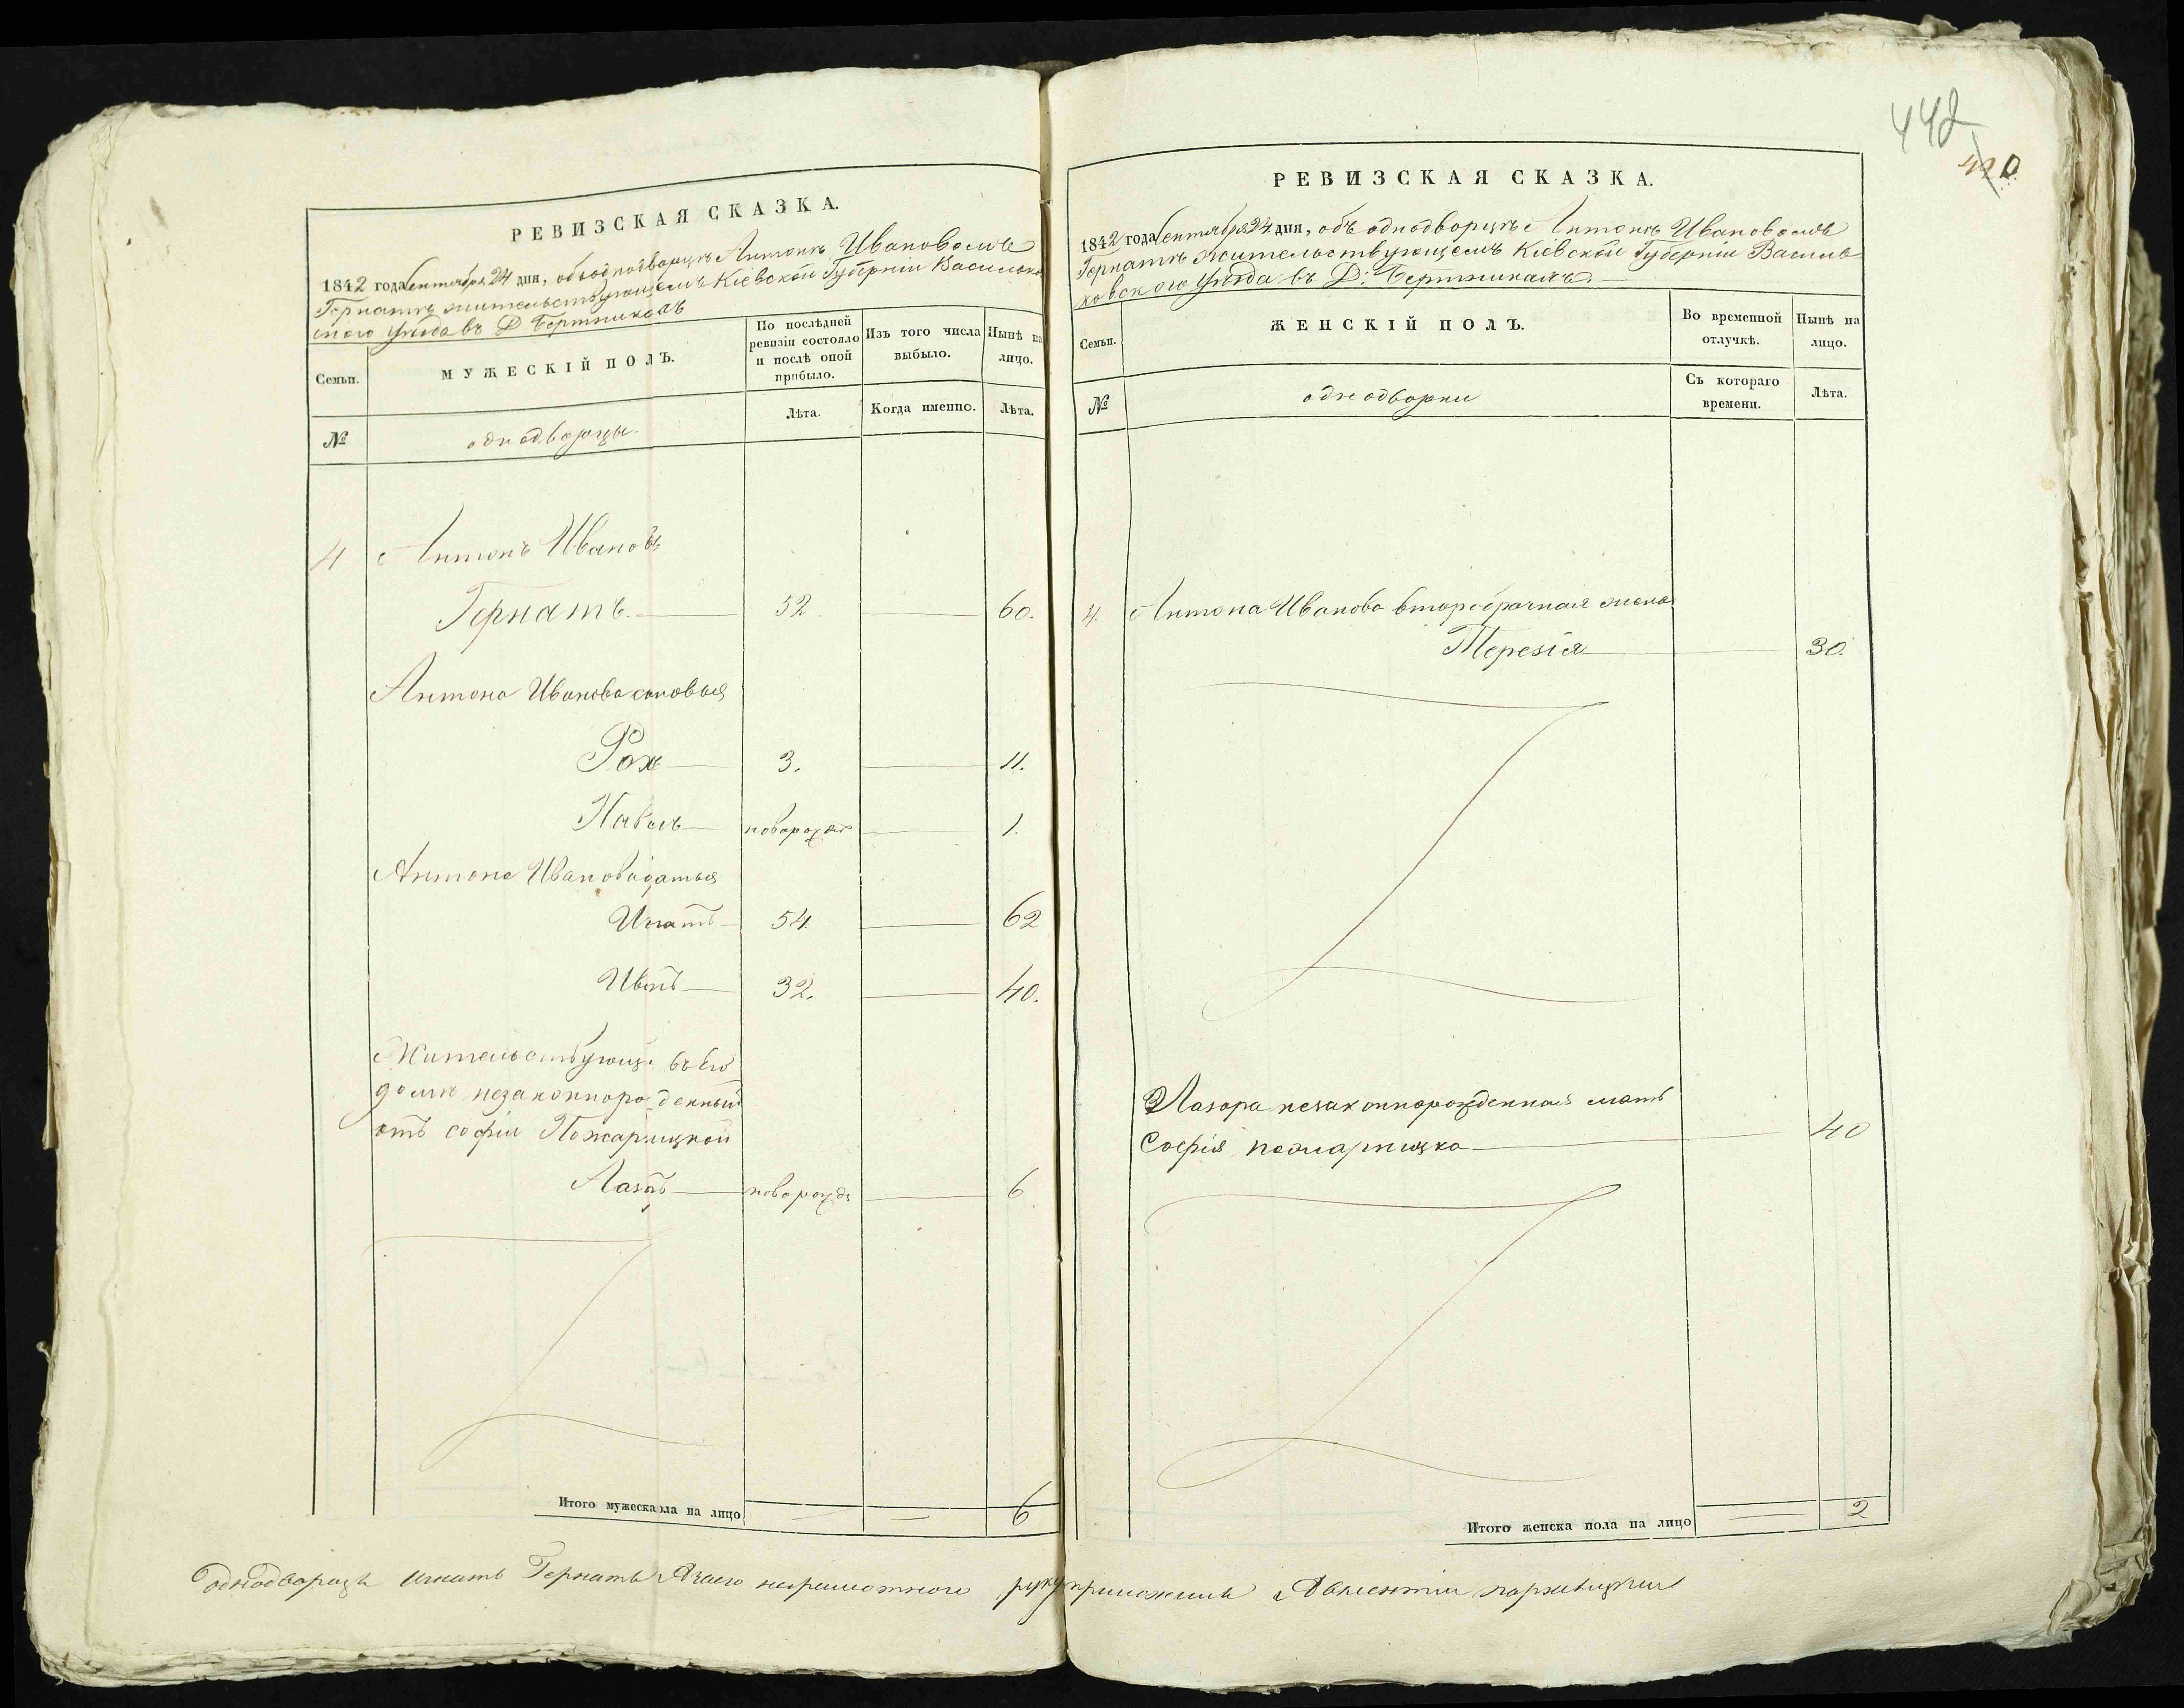 442
420
РЕВИЗСКАЯ СКАЗКА.
1842 года Сентября 24 дня, объ однодворцѣ Антонѣ Ивановомъ
Гернатѣ жительствующемъ Кіевской Губерніи Васильков
скаго Уѣзда въ Д. Бертникахъ
Семьи.
МУЖЕСКІЙ ПОЛЪ.
По послѣдней ревизіи состояло и послѣ оной прибыло.
Изъ того числа выбыло.
Нынѣ на лицо.
№
однодворцы.
Лѣта.
Когда именно.
Лѣта.
4 Антонъ Ивановъ
Гернатъ. 52. 60.
Антона Иванова сыновья
Рох 3. 11.
Павелъ новорожд 1.
Антона Иванова братья
Игнатъ 54. 62
Иванъ 32. 40.
Жительствующ. въ Его
домѣ незаконнорожденный
отъ Софіи Пожарицкой
Лазаръ новорожд 6
Итого мужеска пола на лицо 6
РЕВИЗСКАЯ СКАЗКА.
1842 года Сентября 24 дня, объ однодворцѣ Антонѣ Ивановомъ
Гернатѣ жительствующемъ Кіевской Губерніи Василь
ковскаго Уѣзда въ Д: Бертникахъ.
Семьи.
ЖЕНСКІЙ ПОЛЪ.
Во временной отлучкѣ.
Нынѣ на лицо.
№
однодворки
Съ котораго времени.
Лѣта.
4. Антона Иванова второбрачная жена
Терезія 30.
Лазора незаконнорожденнаго мать
Софія пожарицка 40
Итого женска пола на лицо 2
Однодворецъ Игнатъ Гернатъ А за его неграмотного руку приложилъ